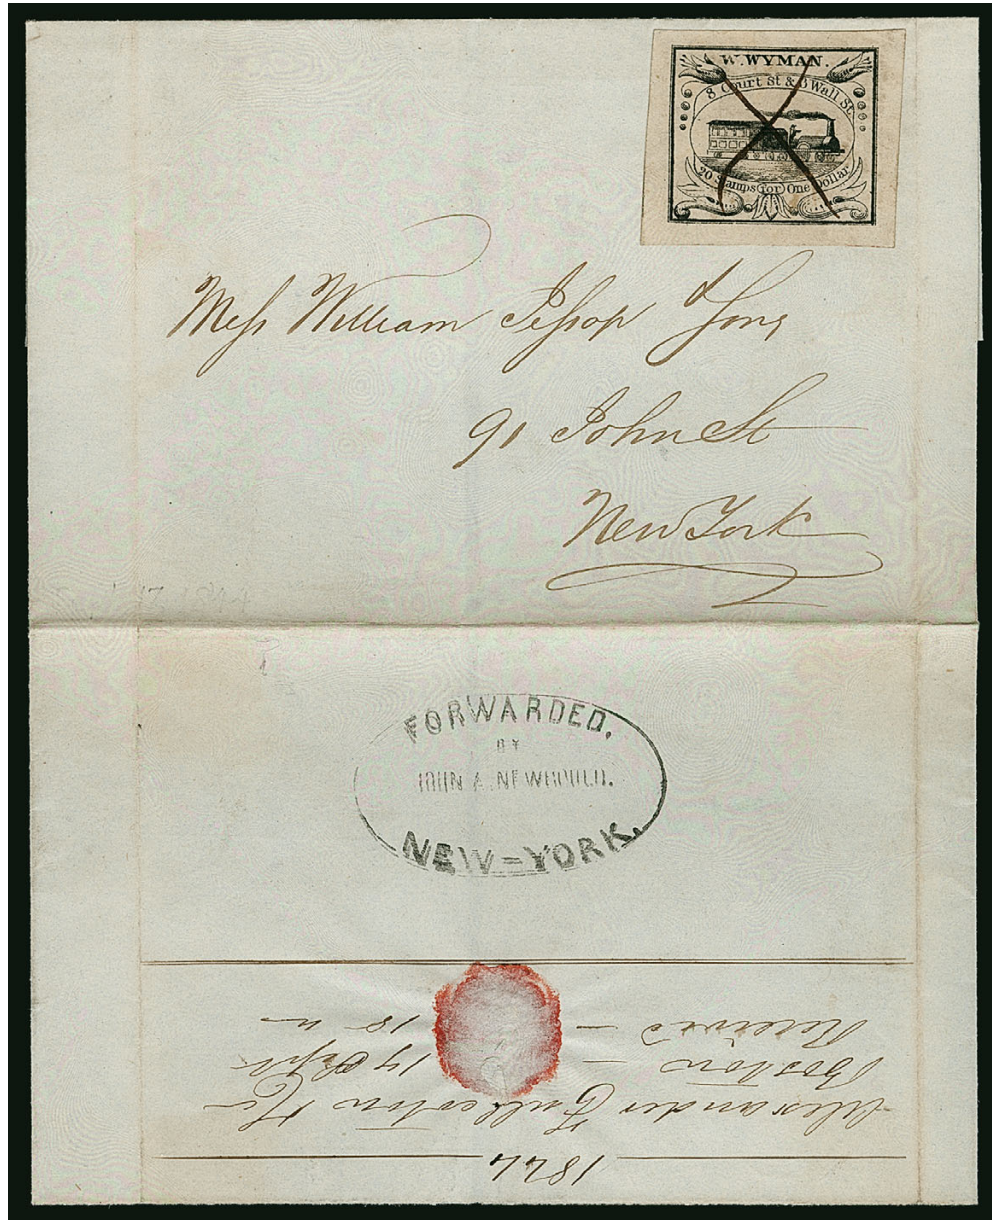 W. WYMAN.
8 Court St & 3 Wall St.
20 Stamps for One Dollar
Mess William Jessop & Sons
91 John St
New York
FORWARDED.
BY
JOHN A. NEWBOULD.
NEW-YORK.
1844
Alexander Fullerton & Co
Boston — 17 Sept
Received — 18 "